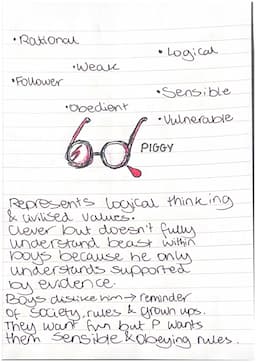 • Rational
• Logical
• Weak
• Follower
• Sensible
• Obedient
• Vulnerable
PIGGY
Represents logical thinking
& civilised values.
Clever but doesn't fully
understand beast within
boys because he only
understands supported
by evidence.
Boys dislike him → reminder
of society, rules & grown ups.
They want fun but P wants
them sensible & obeying rules.